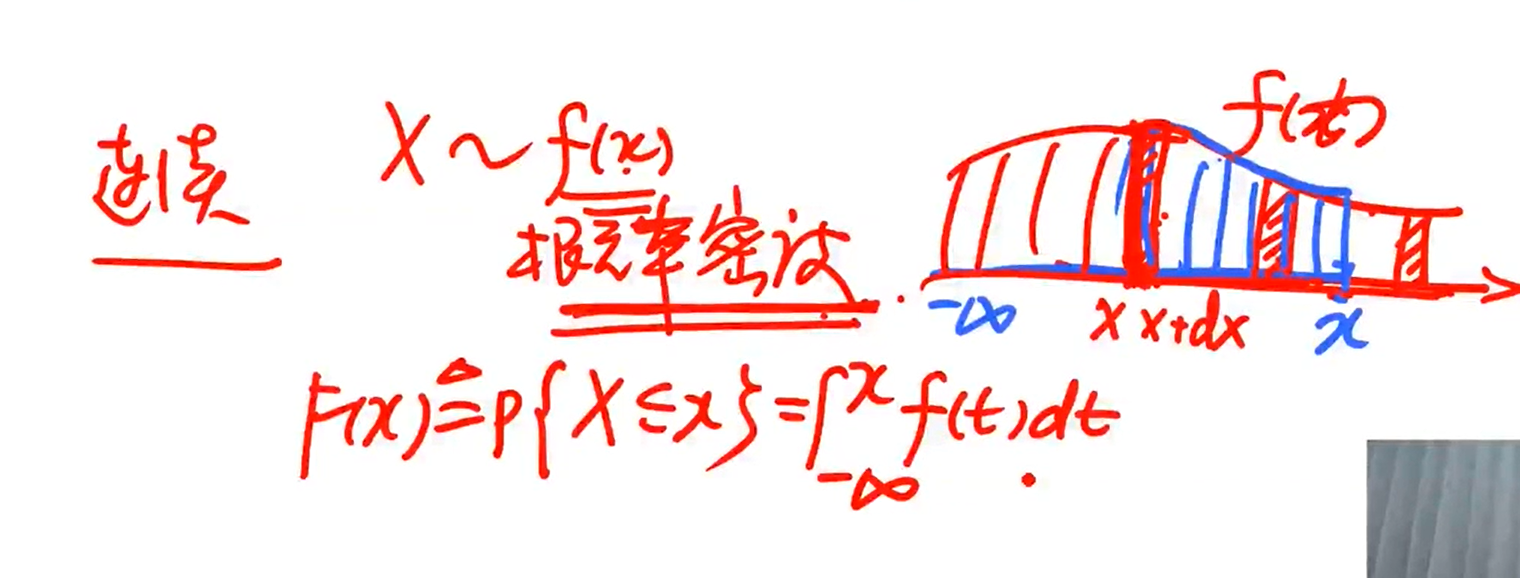 连续
X ~ f(x)
概率密度
f(t)
-∞ x x+dx x
F(x) ≜ P{X ≤ x} = ∫_{-∞}^{x} f(t)dt